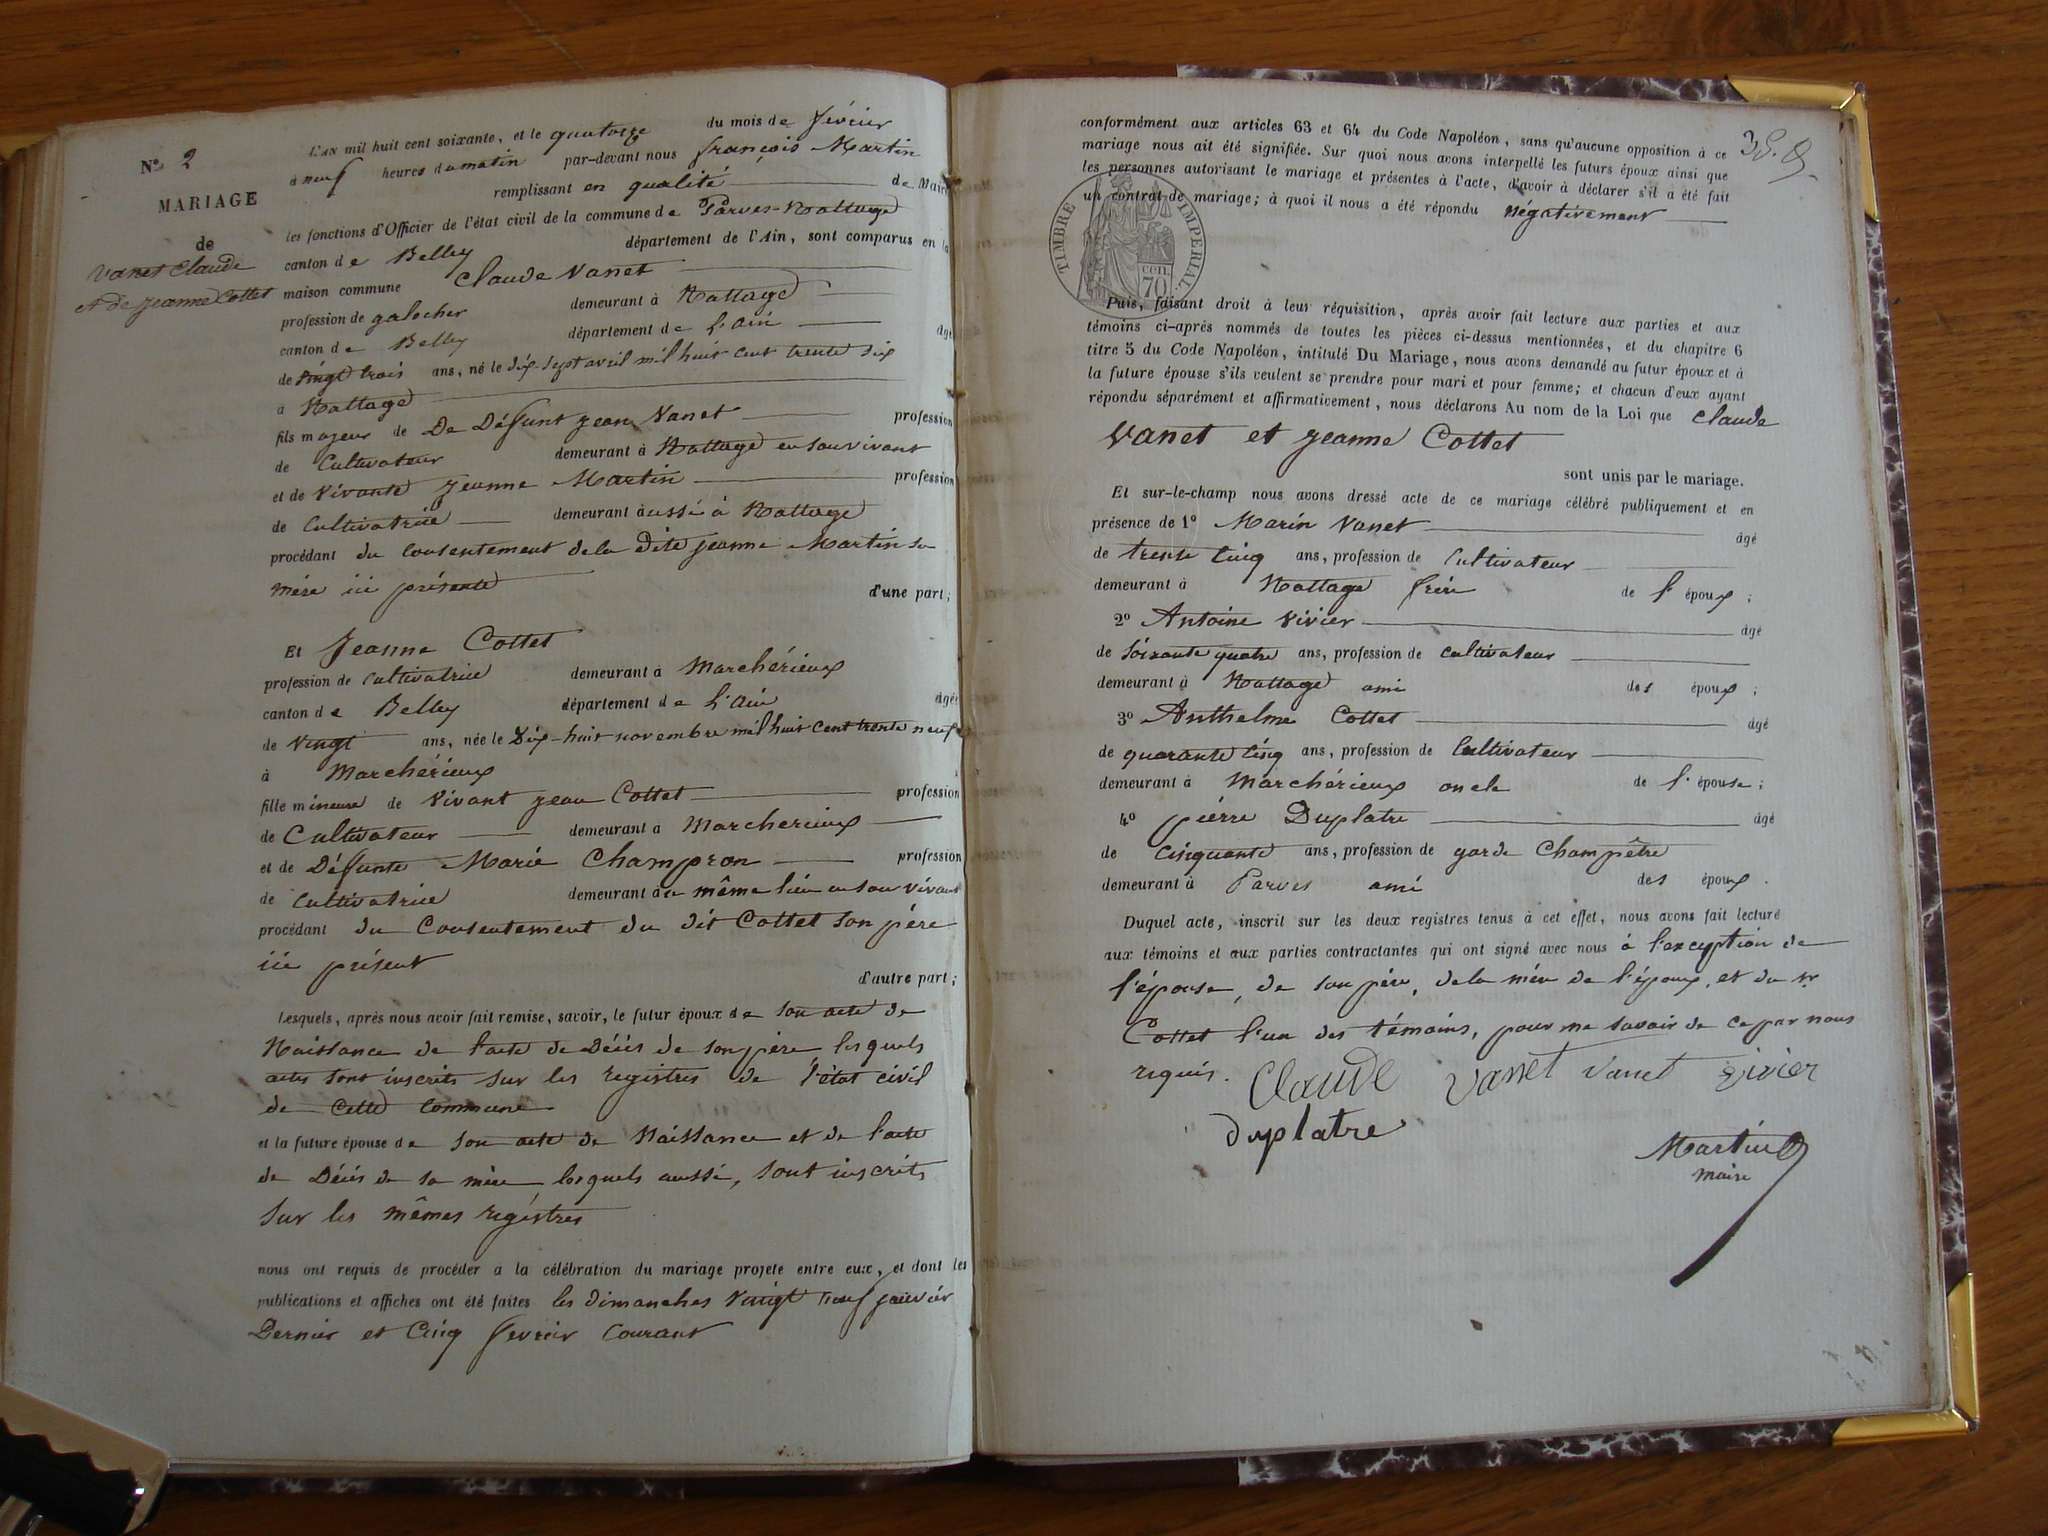 N° 2
MARIAGE
de
Vanet Claude
et de Jeanne Cottet
L'AN mil huit cent soixante, et le quatorze du mois de février
à neuf heures du matin par-devant nous françois Martin
remplissant en qualité de Maire
les fonctions d'Officier de l'état civil de la commune de Parves-Nattage
canton de Belley département de l'Ain, sont comparus en la
maison commune Claude Vanet
profession de galocher demeurant à Nattage
canton de Belley département de l'ain âgé
de vingt trois ans, né le dix-sept avril mil huit cent trente six
à Nattage
fils majeur de De Défunt jean Vanet profession
de Cultivateur demeurant à Nattage en son vivant
et de Vivante Jeanne Martin profession
de Cultivatrice demeurant à aussi à Nattage
procédant du consentement de la dite jeanne Martin sa
mère ici présente d'une part;
Et Jeanne Cottet
profession de cultivatrice demeurant à Marchérieux
canton de Belley département de l'ain âgée
de vingt ans, née le Dix-huit novembre mil huit cent trente neuf
à Marchérieux
fille mineure de Vivant jean Cottet profession
de Cultivateur demeurant à Marcherieux
et de Défunte Marie Champron profession
de cultivatrice demeurant au même lieu en son vivant
procédant du Consentement du dit Cottet son père
ici présent
d'autre part;
Lesquels, après nous avoir fait remise, savoir, le futur époux de son acte de
Naissance de l'acte de Décès de son père lesquels
actes sont inscrits sur les registres de l'état civil
de cette commune
et la future épouse de son acte de Naissance et de l'acte
de Décès de sa mère lesquels aussi, sont inscrits
sur les mêmes registres
nous ont requis de procéder à la célébration du mariage projeté entre eux, et dont les
publications et affiches ont été faites les dimanches vingt neuf janvier
Dernier et Cinq fevrier courant
conformément aux articles 63 et 64 du Code Napoléon, sans qu'aucune opposition à ce
mariage nous ait été signifiée. Sur quoi nous avons interpellé les futurs époux ainsi que
les personnes autorisant le mariage et présentes à l'acte, d'avoir à déclarer s'il a été fait
un contrat de mariage; à quoi il nous a été répondu négativement
TIMBRE IMPERIAL
70 cen.
Puis, faisant droit à leur réquisition, après avoir fait lecture aux parties et aux
témoins ci-après nommés de toutes les pièces ci-dessus mentionnées, et du chapitre 6
titre 5 du Code Napoléon, intitulé Du Mariage, nous avons demandé au futur époux et à
la future épouse s'ils veulent se prendre pour mari et pour femme; et chacun d'eux ayant
répondu séparément et affirmativement, nous déclarons Au nom de la Loi que Claude
Vanet et Jeanne Cottet
sont unis par le mariage.
Et sur-le-champ nous avons dressé acte de ce mariage célébré publiquement et en
présence de 1° Marin Vanet âgé
de trente cinq ans, profession de cultivateur
demeurant à Nattage frère de l'époux;
2° Antoine Vivier âgé
de soixante quatre ans, profession de cultivateur
demeurant à Nattage ami des époux;
3° Anthelme Cottet âgé
de quarante cinq ans, profession de Cultivateur
demeurant à Marchérieux oncle de l'épouse;
4° pierre Duplatre âgé
de cinquante ans, profession de garde Champêtre
demeurant à Parves ami des époux.
Duquel acte, inscrit sur les deux registres tenus à cet effet, nous avons fait lecture
aux témoins et aux parties contractantes qui ont signé avec nous à l'exception de
l'épouse, de son père, de la mère de l'époux, et du sr
Cottet l'un des témoins, pour ne savoir de ce par nous
requis. Claude Vanet Vanet vivier
duplatre
Martin
maire